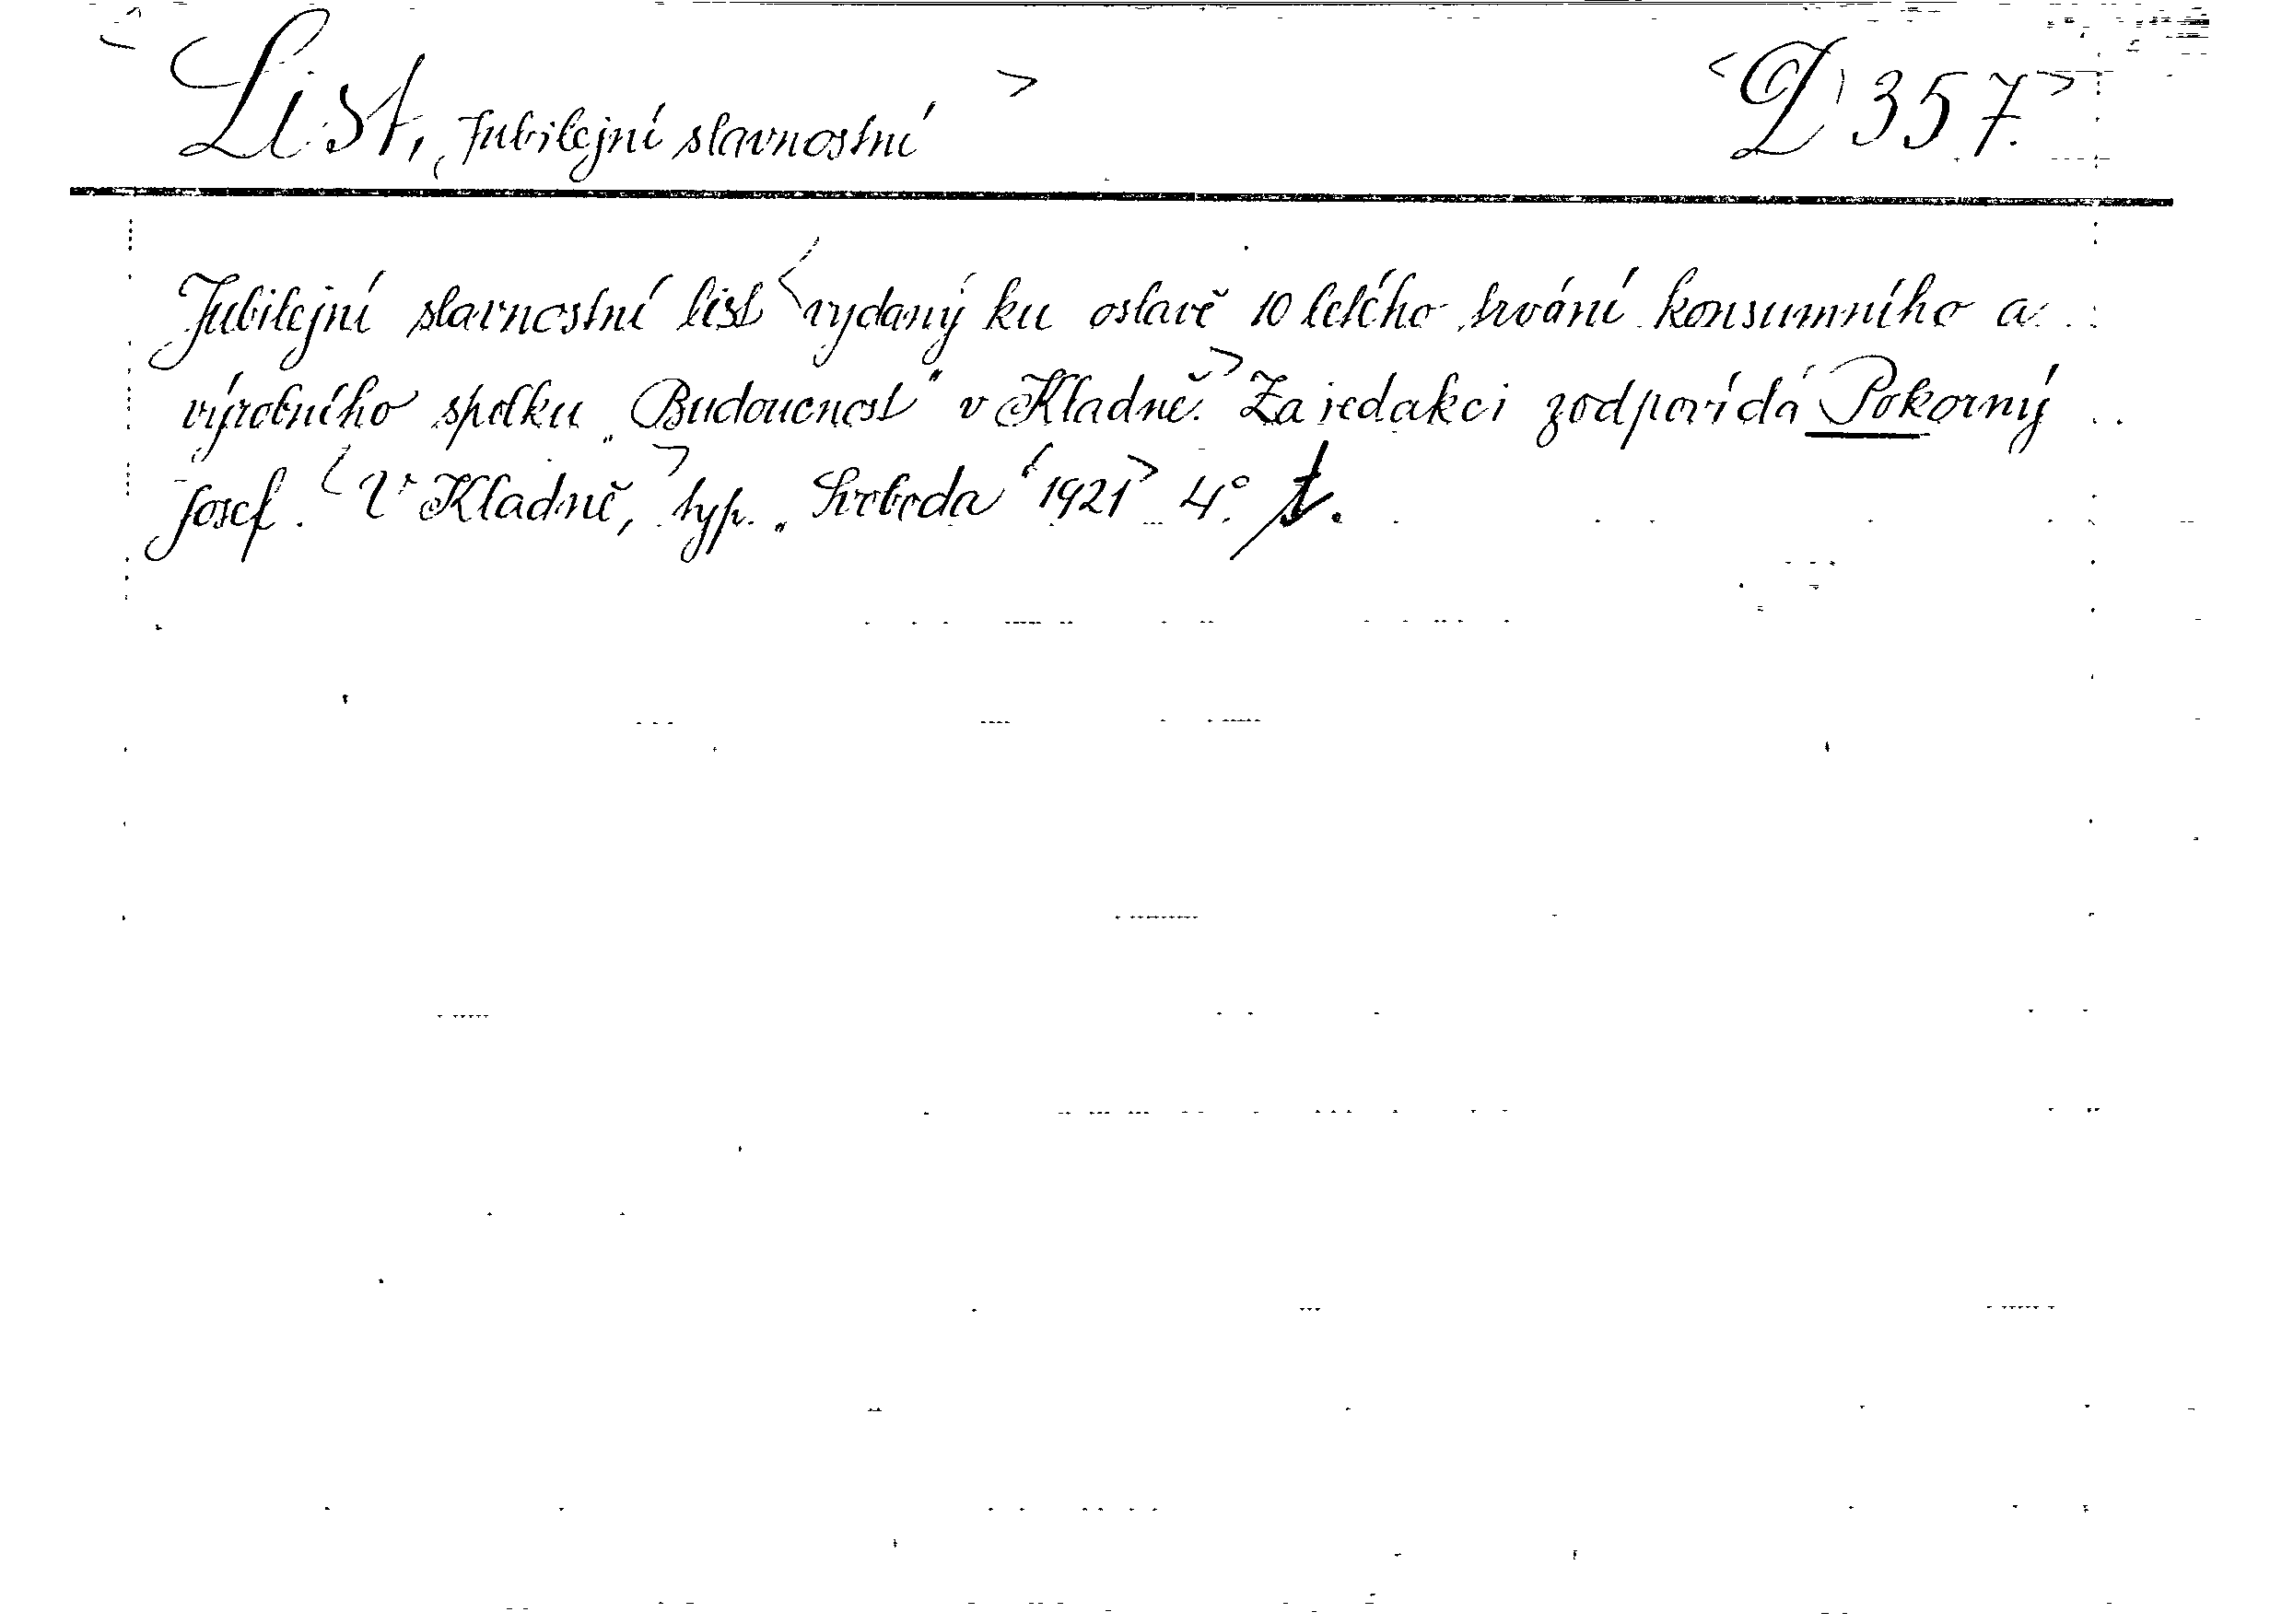 <List, Jubilejní slavnostní> <D 357.>
Jubilejní slavnostní list <vydaný ku oslavě 10 letého trvání konsumního a
výrobního spolku „Budoucnost" v Kladně.> Za redakci zodpovídá Pokorný
Josef. <V Kladně,> typ. „Svoboda <1921> 4°.